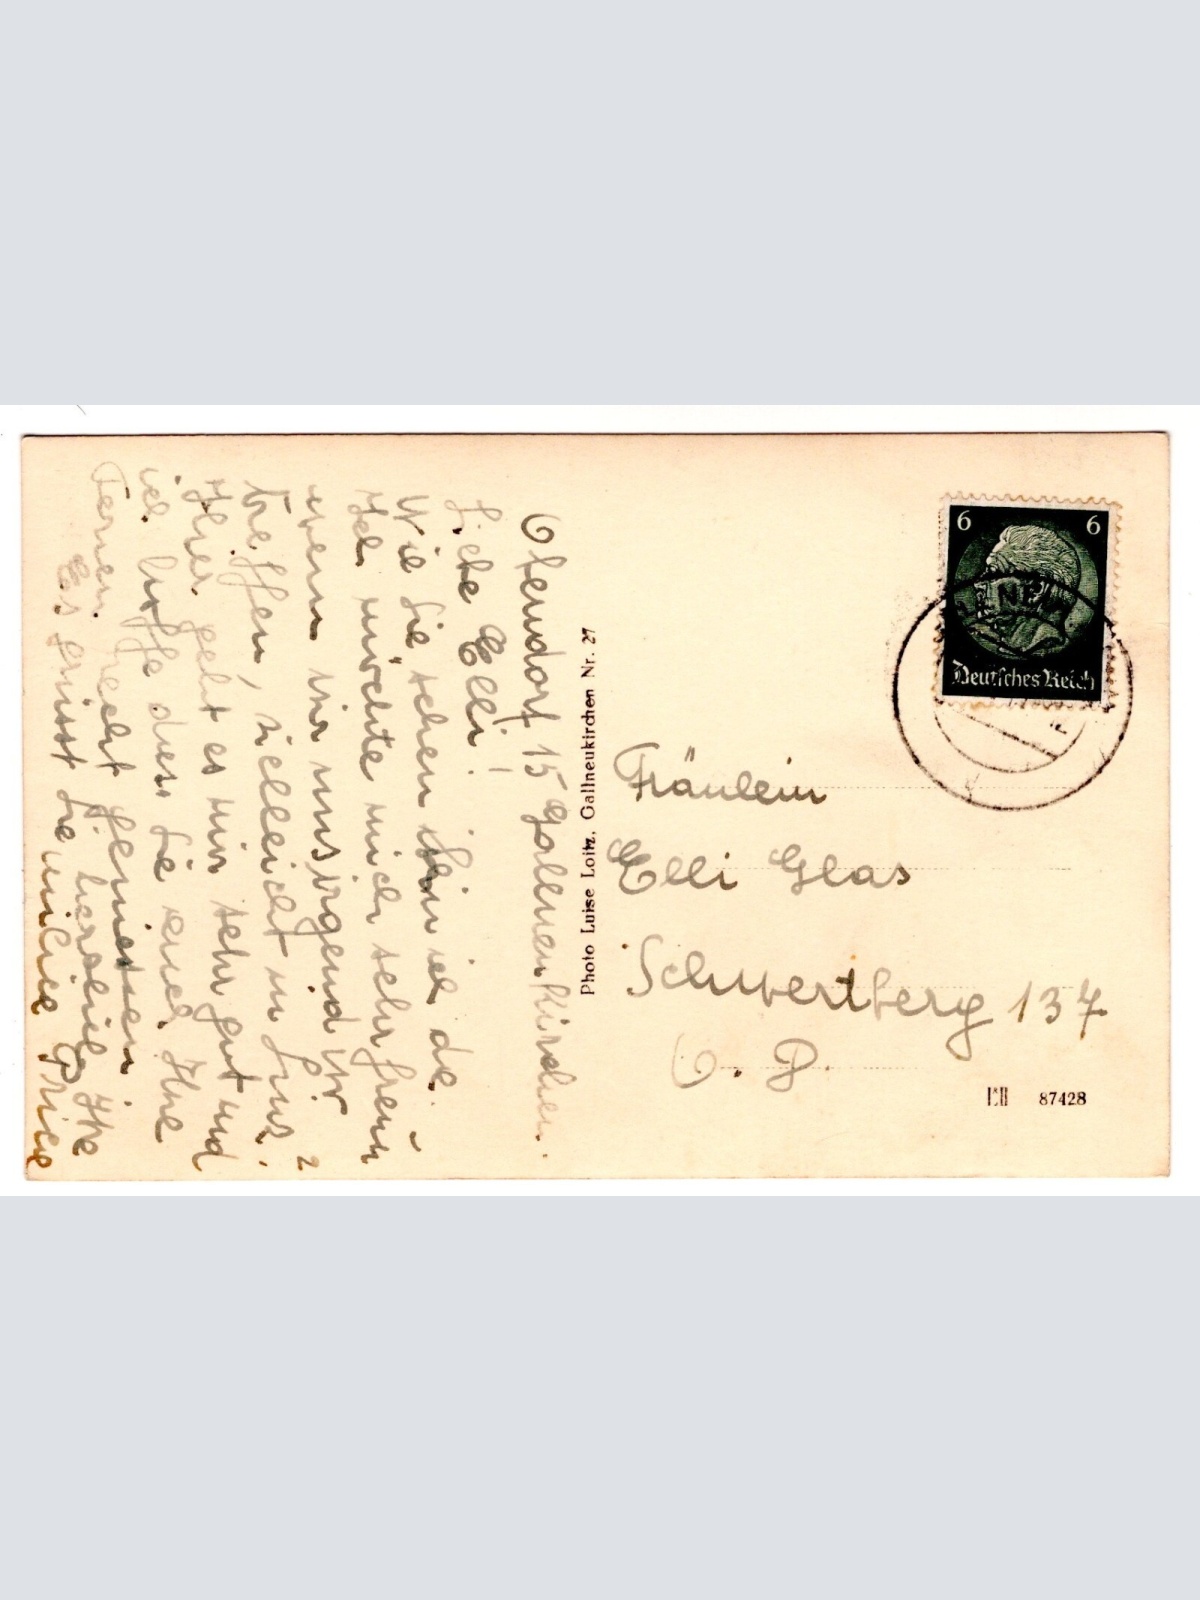 Ottendorf 15 Gallneukirchen.
Liebe Elli!
Wie Sie sehen bin ich da.
Ich möchte mich sehr freun
wenn wir uns irgend wo
treffen, vielleicht in Linz?
Hier geht es mir sehr gut und
ich hoffe dass Sie auch Ihre
Ferien recht geniessen
Es grüsst Sie herzlich Ihre
Photo Luise Loitz, Gallneukirchen Nr. 27
6 6
Deutsches Reich
Fräulein
Elli Glas
Schwertberg 137
O. D.
87428